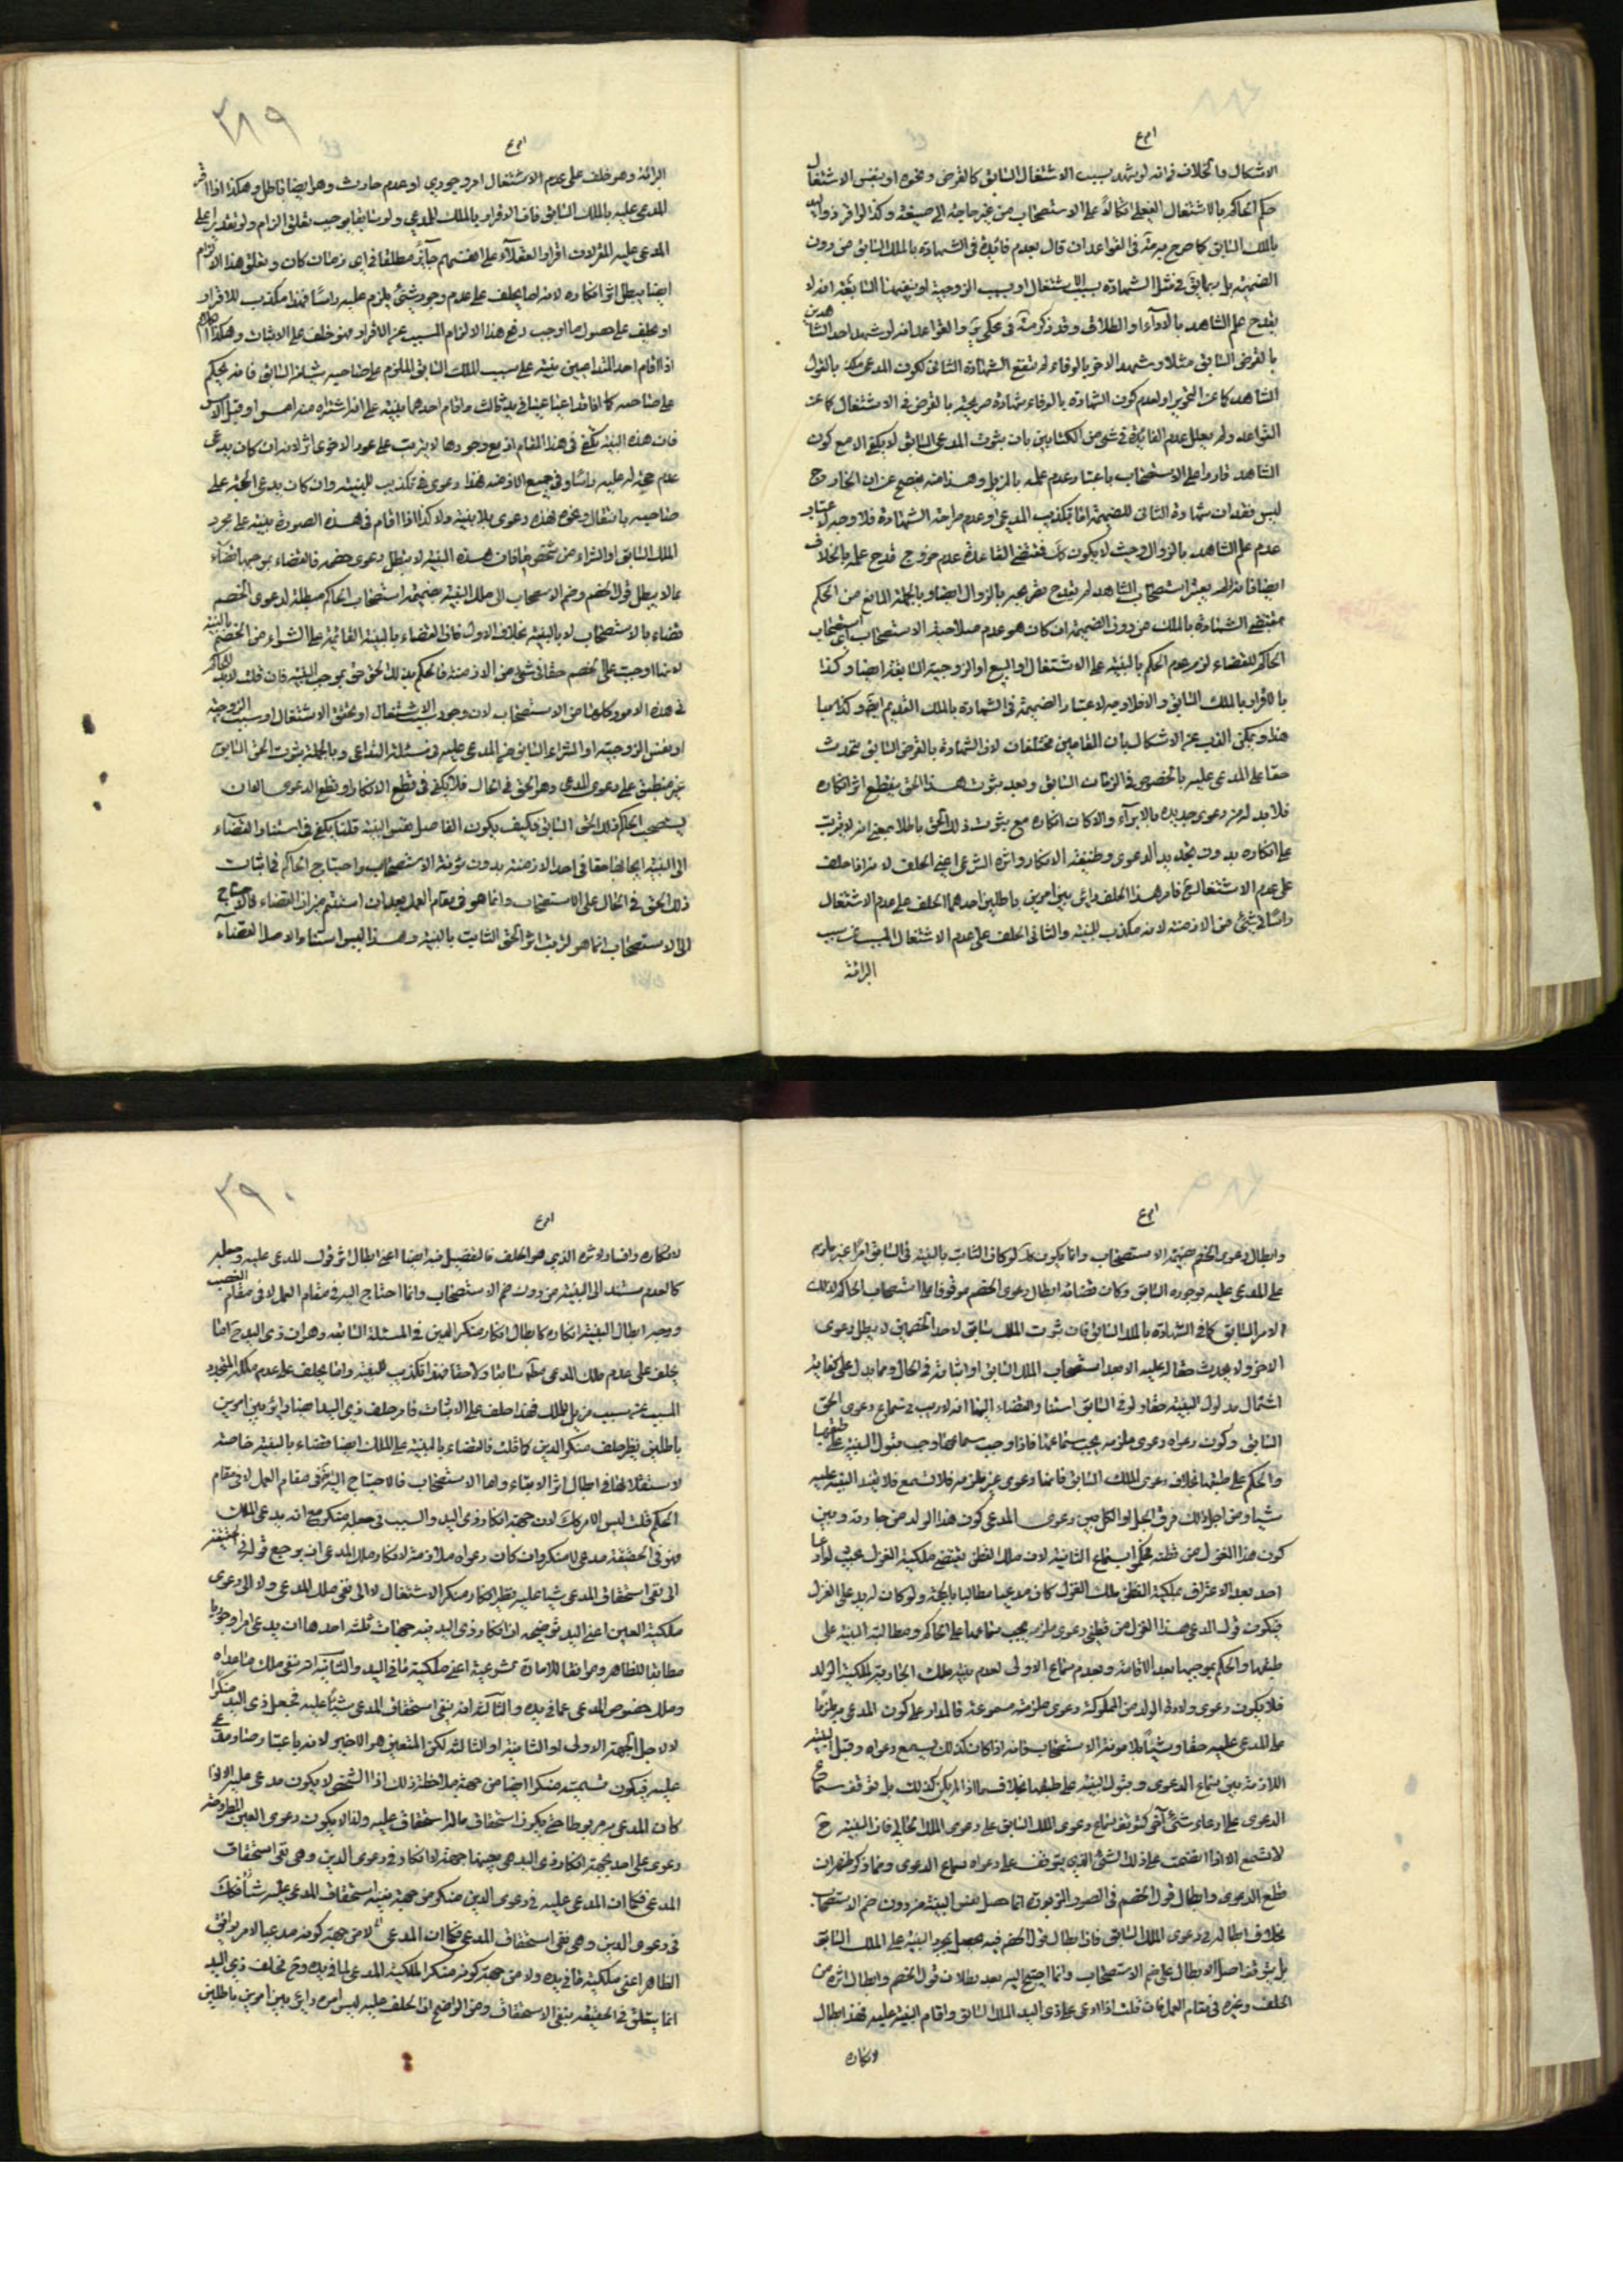 الاشكال والخلاف فى انه لو شهد بسبب الاشتغال السابق كالقرض ونحوه او بنفس الاشتغال
حكم الحاكم بالاشتغال الفعلى اتكالا على الاستصحاب من غير حاجة الى ضميمة وكذا لو اقر ذو اليد
بالملك السابق كما صرح به فى القواعد ان قال بعدم فائدة فى الشهادة بالملك السابق من دون
الضميمة بل ربما فى مثل الشهادة بسبب الاشتغال او بسبب الزوجية او بنفسها السابقة انه لا
يقدح علم الشاهد بالاداء او الطلاق وقد ذكر فى محكى والقواعد انه لو شهد احد الشاهدين
بالقرض السابق مثلا وشهد الاخر بالوفاء لم تنفع الشهادة الثانى لكون المدعى مكذبا لقول
الشاهد كما عن التحرير او لعدم كون الشهادة بالوفاء شهادة صريحة بالقرض والاشتغال كما عن
القواعد ولم يعلل عدم الفائدة فى شئ من الكتابين بان ثبوت المدعى السابق لا يكفى الا مع كون
الشاهد قادرا على الاستصحاب باعتبار عدم علمه بالمزيل وهذا منه يفصح عن ان الخارج
ليس فقدان شهادة الثانى للضميمة اما بتكذيب المدعى او عدم صراحة الشهادة فلا وجه لاعتبار
عدم علم الشاهد بالزوال وحيث لا يكون كك فمقتضى القاعدة عدم خروج قدح علمه بالخلاف
ايضا فانه لم يعتبر استصحاب الشاهد لم يقدح تصريحه بالزوال ايضا وبالجملة المانع من الحكم
بمقتضى الشهادة بالملك من دون الضميمة ان كان هو عدم صلاحية الاستصحاب اى استصحاب
الحاكم للقضاء لزم عدم الحكم بالبينة على الاشتغال او البيع او الزوجية السابقة ايضا وكذا
بالاقرار بالملك السابق والا فلا وجه لاعتبار الضميمة فى الشهادة بالملك القديم ايضا
هذا ويمكن الذب عن الاشكال بان المقامين مختلفان لان الشهادة بالقرض السابق تحدث
حقا على المدعى عليه بالخصوص فى الزمان السابق وبعد ثبوت هذا الحق ينقطع اثر انكاره
فلا بد له من دعوى جديدة بالابراء والا كان انكاره مع ثبوت ذلك الحق باطلا بمعنى انه لا يترتب
على انكاره بدون تجديد الدعوى وظيفة الانكار واثره الشرعى اعنى الحلف لانه اما حلف
على عدم الاشتغال فامر هذا الحلف دائر بين امرين باطلين احدهما الحلف على عدم الاشتغال
راسا فى شئ من الازمنة لانه مكذب للبينة والثانى الحلف على عدم الاشتغال المسبب عن سبب
البرائة
٣٨٩
البرائة وهو حلف على عدم الاشتغال امر وجودى او عدم حادث وهو ايضا باطل وهكذا اذا اقر
المدعى عليه بالملك السابق فان الاقرار بالملك للمدعى ولو سابقا يوجب تعلق الزام ولو تقديرا على
المدعى عليه المقر لان اقرار العقلاء على انفسهم جائز مطلقا فى اى زمان كان وتعلق هذا الالزام
ايضا يبطل اثر انكاره لانه اما يحلف على عدم وجود شئ يلزم عليه راسا فهذا مكذب للاقرار
او يحلف على حصول ما اوجب رفع هذا الالزام المسبب عن الاقرار فهو حلف على الاثبات وهكذا الكلام
اذا اقام احد المتداعيين بينة على سبب الملك السابق الملزم على صاحبه بشئ السابق فانه يحكم
على صاحبه كما اذا تداعيا عينا فى يد ثالث واقام احدهما بينة على انه اشتراه منه امس او قبل الامس
فان هذه البينة تكفى فى هذا المقام اذ مع وجودها لا يترتب على دعوى الاخر اثر لانه ان كان يدعى
عدم حجة له عليه راسا وفى جميع الازمنة فهذا دعوى فيه تكذيب للبينة وان كان يدعى الحجة على
صاحبه بانتقال ونحوه فهذه دعوى بلا بينة ولا كذا اذا اقام فى هذه الصورة بينة على مجرد
الملك السابق او الشراء من شخص فان هذه البينة لا يبطل دعوى خصمه فالقضاء بموجبها قضاء
بما لا يبطل قول الخصم وضم الاستصحاب الى ملك البينة ضميمة استصحاب الحاكم مبطلة لدعوى الخصم
قضاء بالاستصحاب لا بالبينة بخلاف الاول فان القضاء بالبينة القائمة على الشراء من الخصم بالبينة
لانها اوجبت على الخصم حقا فى شئ من الازمنة فالحكم بذلك الحق حق بموجب البينة فان قلت لا بد للحاكم
فى هذه الامور وكلها من الاستصحاب لان وجود سبب الاشتغال او تحقق الاشتغال او سبب الزوجية
او نفس الزوجية او الشراء السابق من المدعى عليه فى مسئلة التداعى وبالجملة ثبوت الحق السابق
غير منطبق على دعوى المدعى وهو الحق فى الحال فلا يكفى فى قطع الانكار او قطع الدعوى الا ان
يستصحب الحاكم ذلك الحق السابق فكيف يكون الفاصل نفس البينة قلنا يكفى فى استناد القضاء
الى البينة ايجابها حقا فى احد الازمنة بدون مؤنة الاستصحاب واحتياج الحاكم فى اثبات
ذلك الحق فى الحال على الاستصحاب وانما هو فى مقام العمل بعد ان استتم ميزان القضاء فالاحتياج
الى الاستصحاب انما هو لترتيب اثر الحق الثابت بالبينة وهذا ليس استناد الاصل القضاء
وابطال دعوى الخصم بضميمة الاستصحاب وانما يكون كك لو كان الثابت بالبينة فى السابق امرا غير ملزم
على المدعى عليه بوجوده السابق وكان قضائه ابطال دعوى الخصم موقوفا على استصحاب الحاكم لذلك
الامر السابق كما فى الشهادة بالملك السابق فان ثبوت الملك سابق لاحد الخصمين لا يبطل دعوى
الاخر ولا يحدث حقا له عليه الا بعد استصحاب الملك السابق او اثباته فى الحال ومما يدل على كفاية
اشتمال مدلول البينة حقا ولو فى السابق استناد القضاء اليها انه لا ريب فى سماع دعوى الحق
السابق وكون دعواه دعوى ملزمة يجب سماعها فاذا وجب سماعها وجب قبول البينة على طبقها
والحكم على طبقها بخلاف دعوى الملك السابق فانها دعوى غير ملزمة فلا تسمع فلا يفيد البينة عليه
شيئا ومن اجل ذلك فرق الجل او الكل بين دعوى المدعى كون هذا الولد من جاريته وبين
كون هذا الغزل من قطنه فحكموا بسماع الثانية لان ملك القطن يقتضى ملكية الغزل بحيث لو ادعا
احد بعد الاعتراف بملكية القطن ملك الغزل كان مدعيا مطالبا بالحجة ولو كان له يد على الغزل
فيكون قول المدعى هذا الغزل من قطنى دعوى ملزمة يجب سماعها على الحاكم ومطالبة البينة على
طبقها والحكم بموجبها بعد الاقامة وبعدم سماع الاولى لعدم ملك الجارية لملكية الولد
فلا يكون دعوى ولادة الولد من المملوكة دعوى ملزمة مسموعة فالمدار على كون المدعى به ملزما
على المدعى عليه حقا وشيئا بلا مؤنة الاستصحاب فانه اذا كان كذلك يسمع دعواه وقبل البينة
اللازمة بين سماع الدعوى وقبول البينة على طبقها بخلاف ما اذا لم يكن كذلك بل توقف سماع
الدعوى على ادعاء شئ آخر كتوقف سماع دعوى الملك السابق على دعوى الملك الحالى فان البينة ح
لا تسمع الا اذا انضمت على ذلك الشئ الذى يتوقف على دعواه سماع الدعوى ومما ذكر ظهر ان
قطع الدعوى وابطال قول الخصم فى الصور المزبورة انما حصل بنفس البينة من دون ضم الاستصحاب
بخلاف ابطاله فى دعوى الملك السابق فان ابطال قول الخصم فيه لا يحصل بمجرد البينة على الملك السابق
بل يتوقف اصل الابطال على ضم الاستصحاب وانما احتيج اليه بعد بطلان قول الخصم وابطال اثره من
الحلف وغيره فى مقام العمل فان قلت اذا ادعى على ذى اليد الملك السابق واقام البينة عليه فهذا ابطال
لانكاره
٣٩٠
لانكاره وافساد لاثره الذى هو الحلف فالتفصيل فيه ايضا اعنى ابطال اثر قول المدعى عليه وجعله
كالعدم مستند الى البينة من دون ضم الاستصحاب وانما احتاج اليه فى مقام العمل لا فى مقام
ووجه ابطال البينة انكاره كابطال انكار منكر الدين فى المسئلة السابقة وهو ان ذى اليد ح اما
يحلف على عدم ملك المدعى سابقا ولاحقا فهذا تكذيب للبينة واما يحلف على عدم ملكه المتجدد
المسبب عن سبب مزيل للملك فهذا حلف على الاثبات فامر حلف ذى اليد ايضا دائر بين امرين
باطلين نظير حلف منكر الدين كما قلت فالقضاء بالبينة على الملك ايضا قضاء بالبينة خاصة
لاستقلالها فى ابطال اثر الامتناء واما الاستصحاب فالاحتياج اليه فى مقام العمل لا فى مقام
الحكم قلت ليس الامر كك لان جهة انكار ذى اليد والسبب فى جعله منكرا مع انه يدعى الملك
فهو فى الحقيقة مدع لا منكر وان كان دعواه ملازمة لانكار ملك المدعى ان يرجع قوله فى الحقيقة
الى نفى استحقاق المدعى شيئا عليه نظير انكار منكر الاشتغال لا الى نفى ملك المدعى ولا الى دعوى
ملكية العين اعنى اليد توضيحه ان انكار ذى اليد فيه جهات ثلثة احدها ان يدعى امرا وجوديا
مطابقا للظاهر وموافقا للامارة شرعية اعنى ملكية ما فى اليد والثانية انه ينفى ملك ما عداه
وملك خصوص المدعى عما فى يده والثالثة انه ينفى استحقاق المدعى شيئا عليه فجعل ذى اليد منكرا
لا لاجل الجهة الاولى او الثانية او الثالثة لكن المتعين هو الاخير لانه باعتبار صار مدعى
عليه فيكون تسميته منكرا ايضا من جهة ملاحظة ذلك اذ الشخص لا يكون مدعى عليه الا اذا
كان المدعى به مربوطا حتى يكون استحقاق ماله استحقاق عليه ولذا لا يكون دعوى العين المطروحة
دعوى على احد فجهة انكار ذى اليد هى بعينها جهة الانكار فى دعوى الدين وهى نفى استحقاق
المدعى فكما ان المدعى عليه فى دعوى الدين منكر من جهة نفيه استحقاق المدعى عليه شيئا فكك
فى دعوى العين وهى نفى استحقاق المدعى فكما ان المدعى لا من جهة كونه مدعيا لامر يوافق
الظاهر اعنى ملكية ما فى يده ولا من جهة كونه منكرا لملكية المدعى لما فى يده وح فحلف ذى اليد
انما يتعلق فى الحقيقة بنفى الاستحقاق ومن الواضح ان الحلف عليه ليس امره دائر بين امرين باطلين